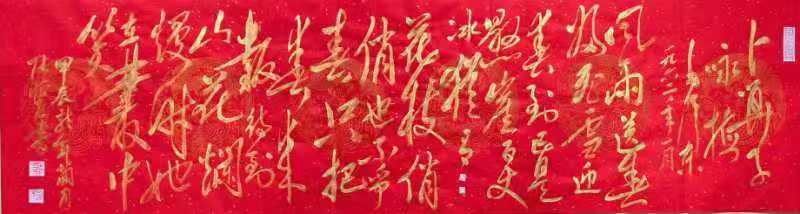 卜算子
咏梅
毛泽东
一九六一年十二月
风雨送春
归飞雪迎
春到已是
悬崖百丈
冰犹有
花枝俏
俏也不争
春只把
春来
报待到
山花烂
熳时她
在丛中
笑
甲辰